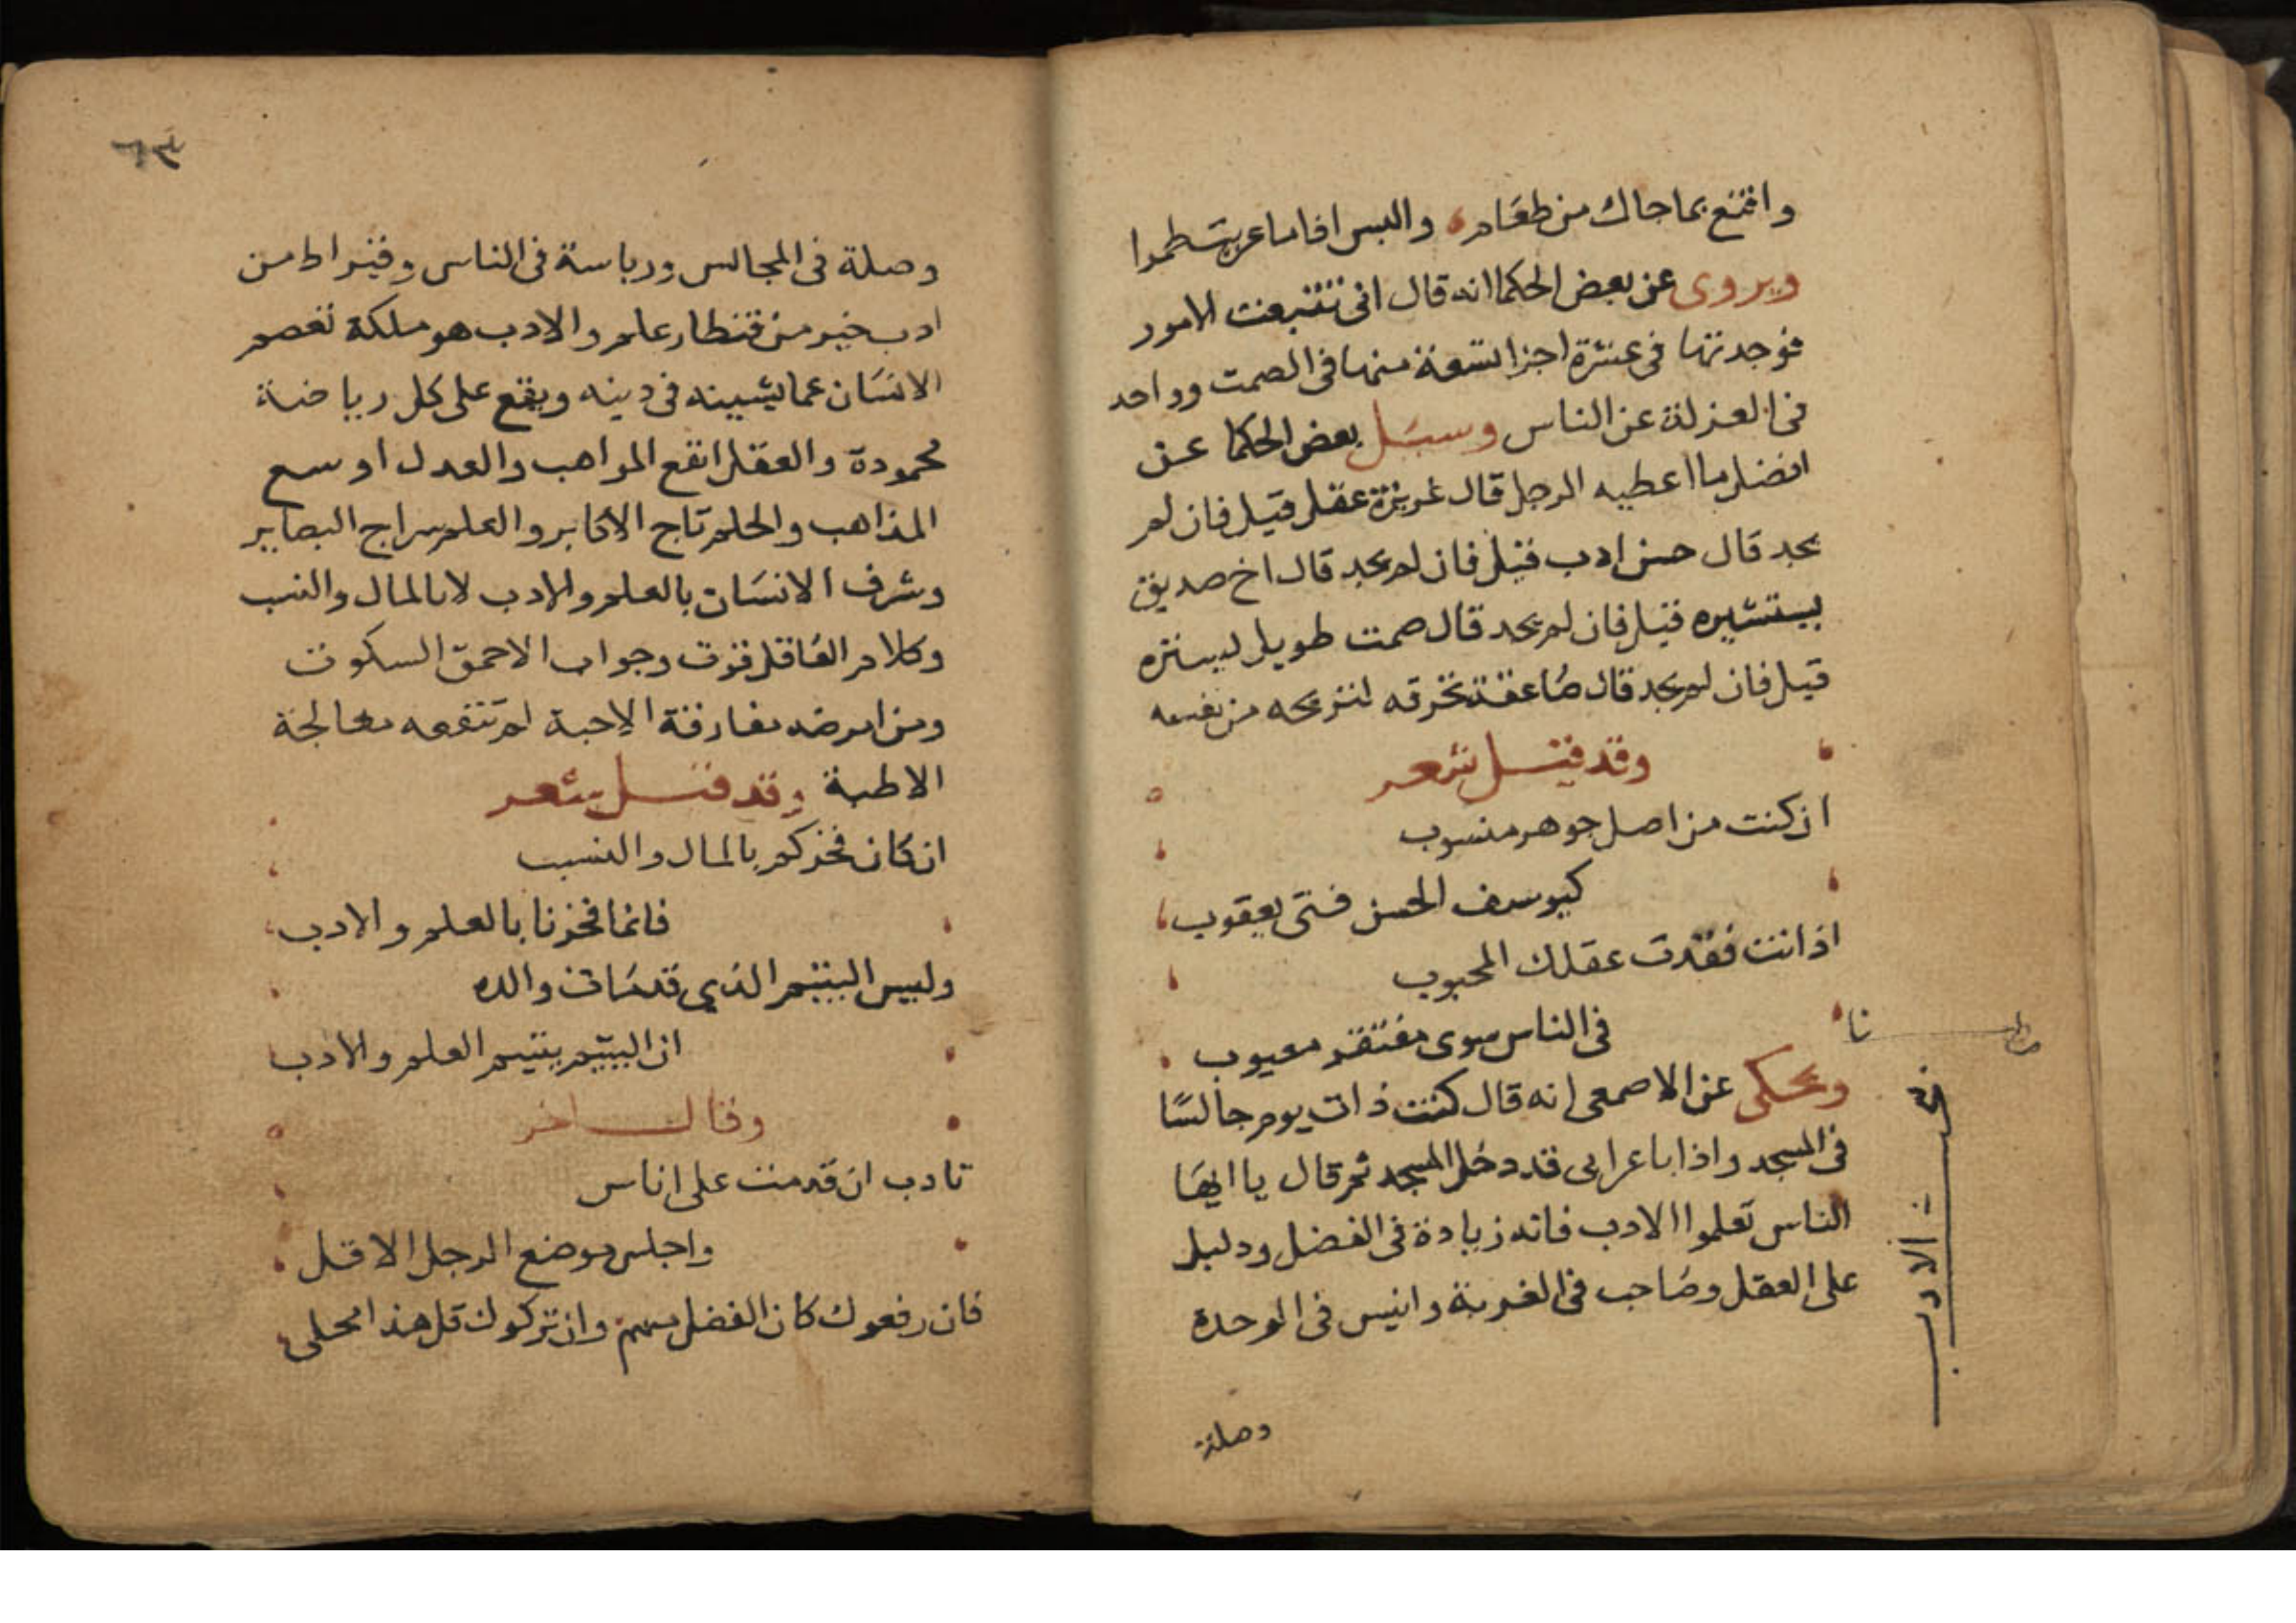 واقنع بما جاك من طعام والبس اذا ما عريت طمرا
ويروى عن بعض الحكما انه قال انى تتبعت الامور
فوجدتها فى عشرة اجزا تسعة منها فى الصمت وواحد
فى العزلة عن الناس وسيل بعض الحكما عن
افضل ما اعطيه الرجل قال غريزة عقل قيل فان لم
يجد قال حسن ادب قيل فان لم يجد قال اخ صديق
يستشيره قيل فان لم يجد قال صمت طويل يستره
قيل فان لم يجد قال صاعقة تحرقه لتريحه من نفسه
وقد قيل شعر
ان كنت من اصل جوهر منسوب
كيوسف الحسن فتى يعقوب
اذا انت فقدت عقلك المحبوب
فى الناس سوى مفتقر معيوب
ويحكى عن الاصمعى انه قال كنت ذات يوم جالسًا
فى المسجد واذا باعرابى قد دخل المسجد ثم قال يا ايها
الناس تعلموا الادب فانه زيادة فى الفضل ودليل
على العقل وصاحب فى الغربة وانيس فى الوحدة
وصلة
نا
مطلب
فى
الادب
وصلة فى المجالس ورياسة فى الناس وقيراط من
ادب خير من قنطار علم والادب هو ملكة تعصم
الانسان عما يشينه فى دينه ويقع على كل رياضة
محمودة والعقل انفع المواهب والعدل اوسع
المذاهب والحلم تاج الاكابر والعلم سراج البصاير
وشرف الانسان بالعلم والادب لا بالمال والنسب
وكلام العاقل قوت وجواب الاحمق السكوت
ومن امرضه مفارقة الاحبة لم تنفعه معالجة
الاطبة وقد قيل شعر
ان كان فخركم بالمال والنسب
فانما فخرنا بالعلم والادب
وليس اليتيم الذي قد مات والده
ان اليتيم يتيم العلم والادب
وقال اخر
تادب ان قدمت على اناس
واجلس موضع الرجل الاقل
فان رفعوك كان الفضل منهم وان تركوك قل هذا محلى